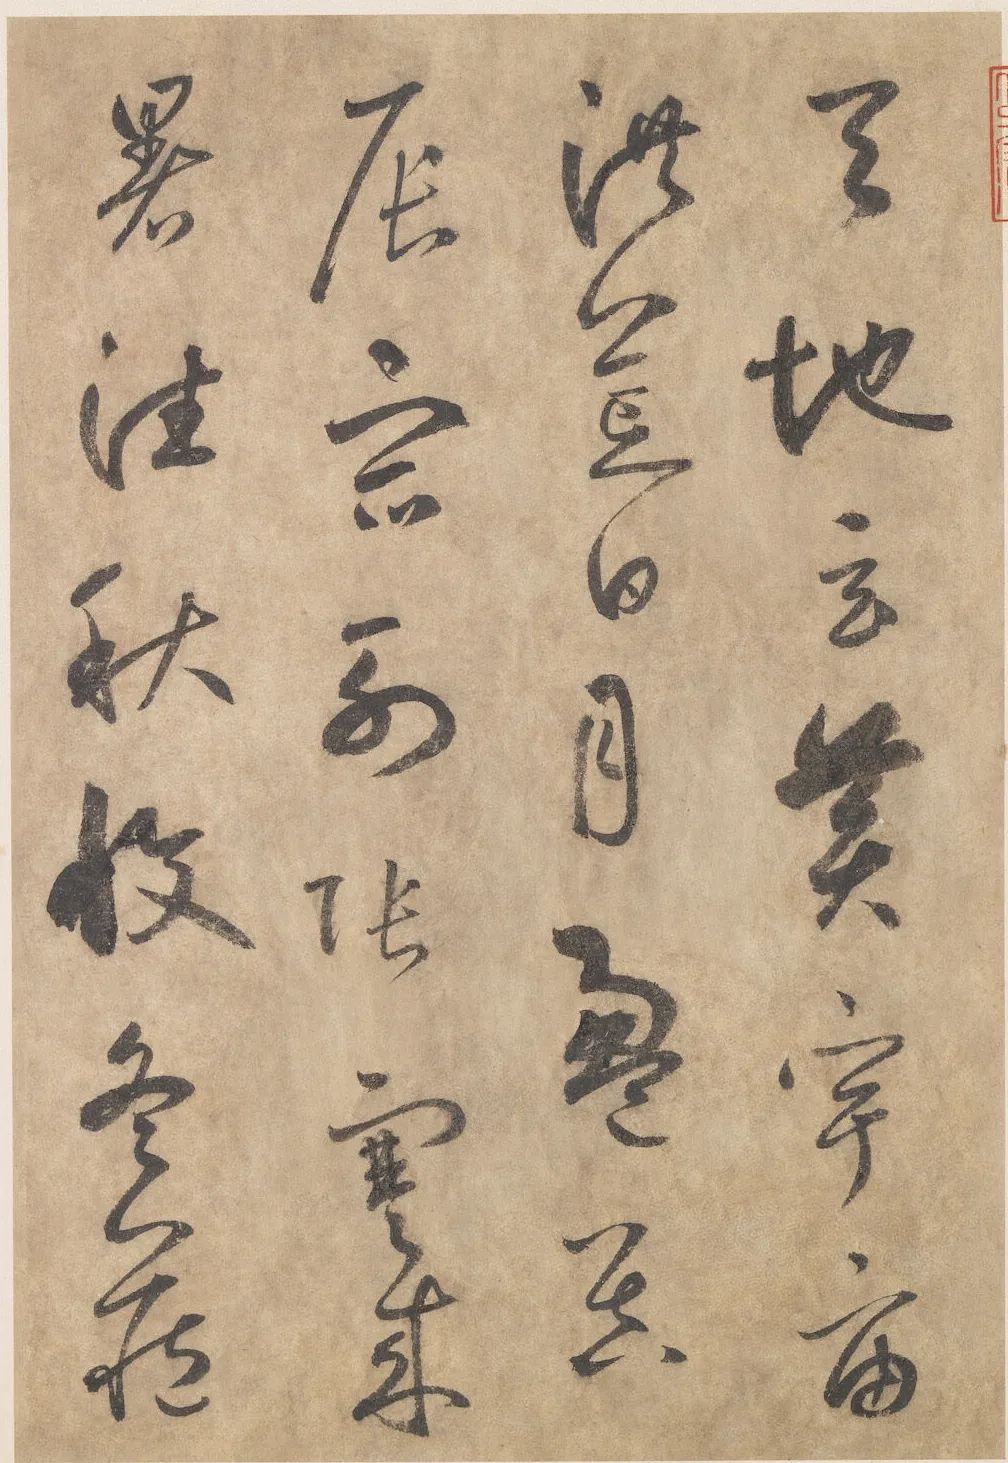 天地玄黄宇宙
洪荒日月盈昃
辰宿列张寒来
暑往秋收冬藏